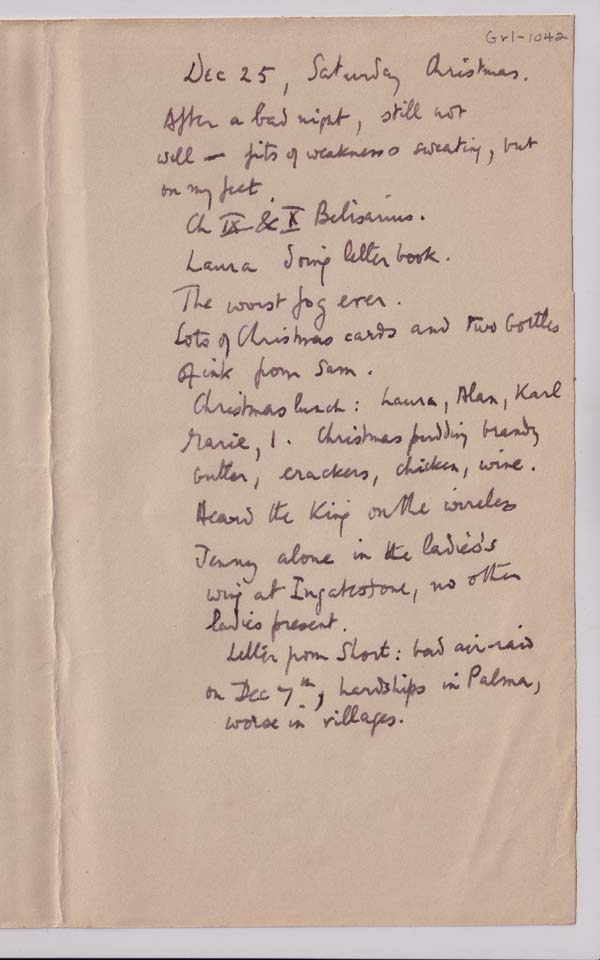 Grl-1042
Dec 25, Saturday Christmas.
After a bad night, still not
well — fits of weakness & sweating, but
on my feet.
Ch IX & X Belisarius.
Laura doing letter book.
The worst fog ever.
Lots of Christmas cards and two bottles
of ink from Sam.
Christmas lunch: Laura, Alan, Karl
Marie, I. Christmas pudding brandy
butter, crackers, chicken, wine.
Heard the King on the wireless
Jenny alone in the ladies's
wing at Ingatestone, no other
ladies present.
Letter from Short: bad air-raid
on Dec 7th, hardships in Palma,
worse in villages.